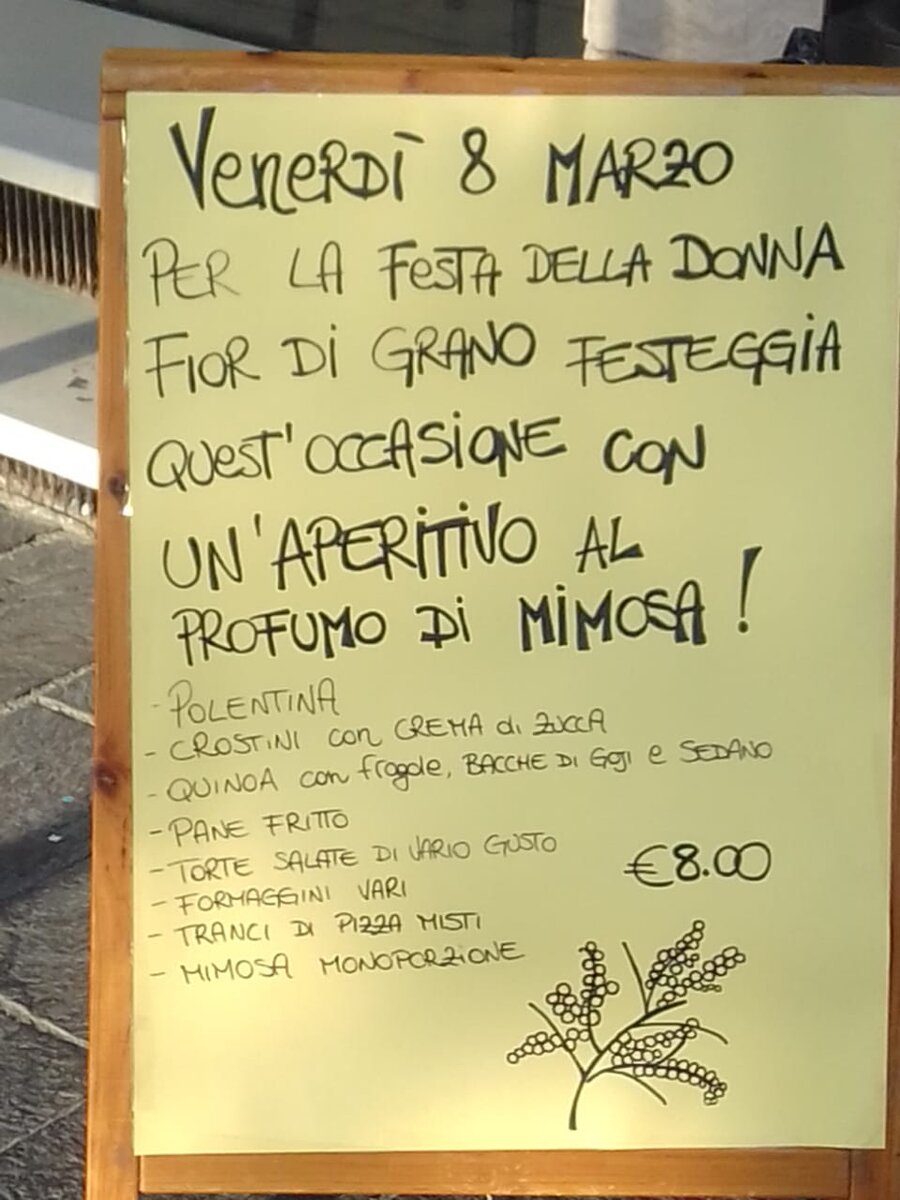 Venerdì 8 MARZO
PER LA FeSTA DELLA DONNA
FIOR Di GRANO FESTEGGiA
QUeST'OCCASiONE CON
UN'APERiTiVO AL
PROFUMO Di MiMOSA!
- POLENTINA
- CROSTiNi con CREMA di ZUCCA
- QUINOA con fragole, BACCHE Di Goji e SEDANO
- PANE FRiTTO
- TORTE SALATE Di VARiO GUSTO
- FORMAGGiNi VARi
- TRANCi Di PiZZA MiSTi
- MiMOSA MONOPORZiONE
€8.00